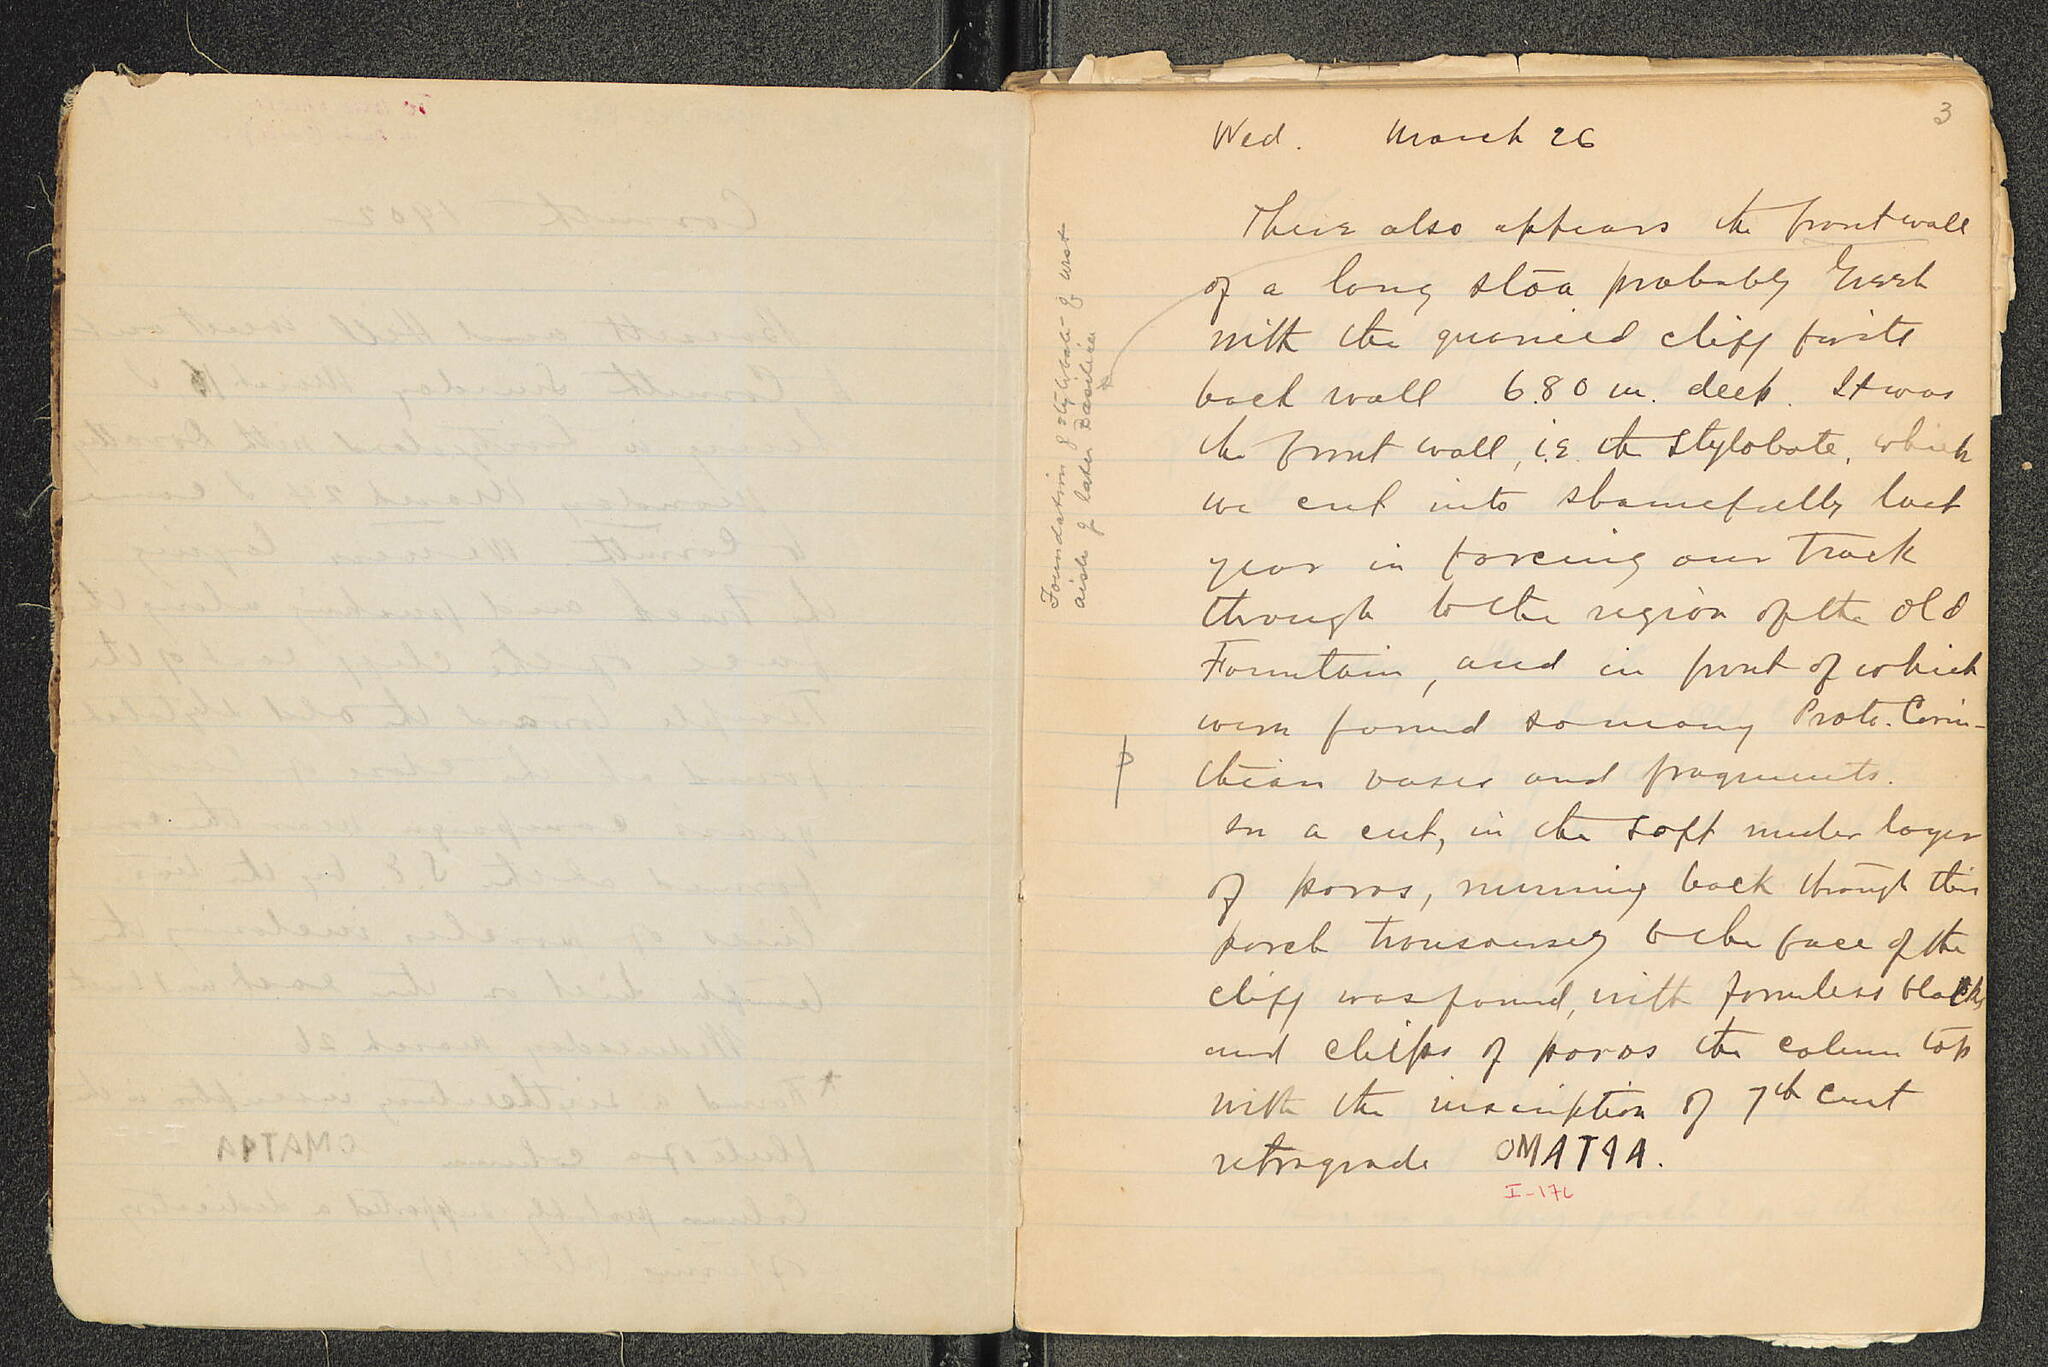 3
Wed. March 26
There also appears the front wall
of a long stoa probably Greek
with the quarried cliff for its
back wall 6.80 m. deep. It was
the front wall, i.e. the stylobate, which
we cut into shamefully last
year in forcing our track
through to the region of the old
Fountain, and in front of which
were found so many Proto-Corin-
thian vases and fragments.
In a cut, in the soft under layer
of poros, running back through this
porch transversely to the face of the
cliff was found, with formless blocks
and chips of poros the column top
with the inscription of 7th cent
retrograde OMAT9A.
I-176
Foundation of stylobate of west
aisle of later Basilica